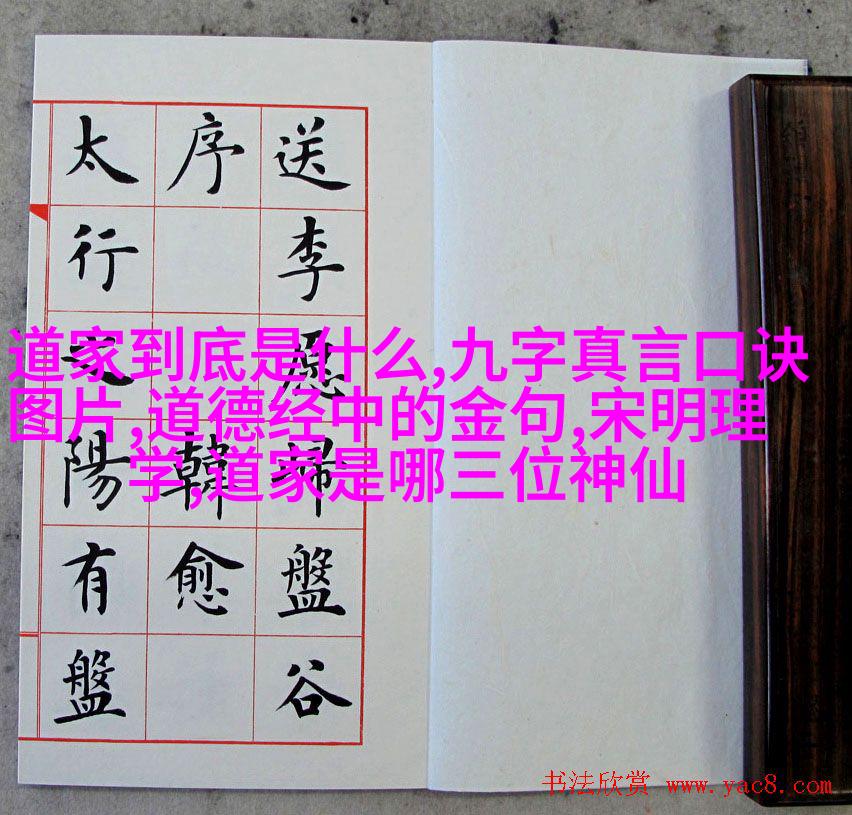 送李愿歸盤谷
序韓愈
太行之陽有盤
道家到底是什么,九字真言口诀
图片,道德经中的金句,宋明理
学,道家是哪三位神仙
书法欣赏 www.yac8.com